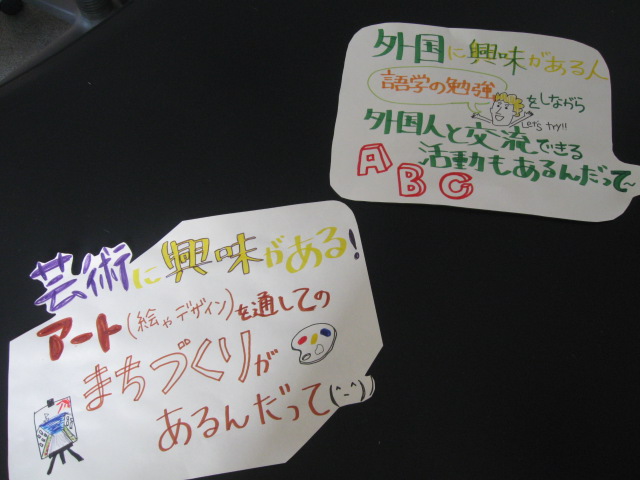 外国に興味がある人
語学の勉強をしながら
Let's try!!
外国人と交流できる
活動もあるんだって〜
ABC
芸術に興味がある!
アート(絵やデザイン)を通しての
まちづくりが
あるんだって(^-^))